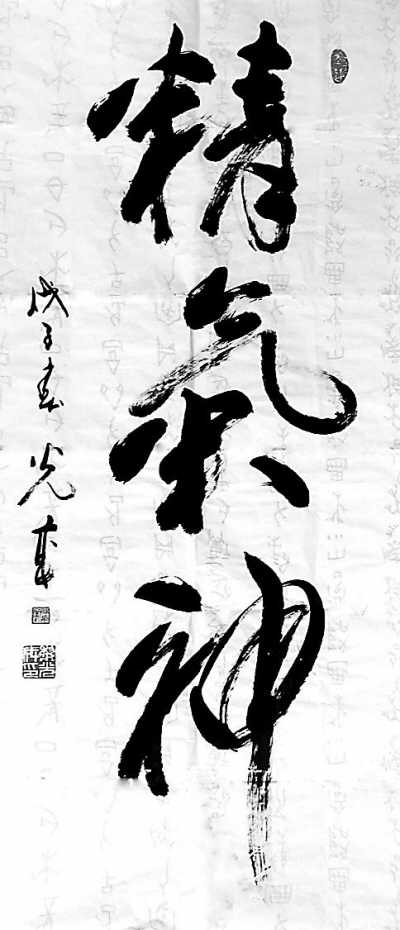 精氣神
戊子春光